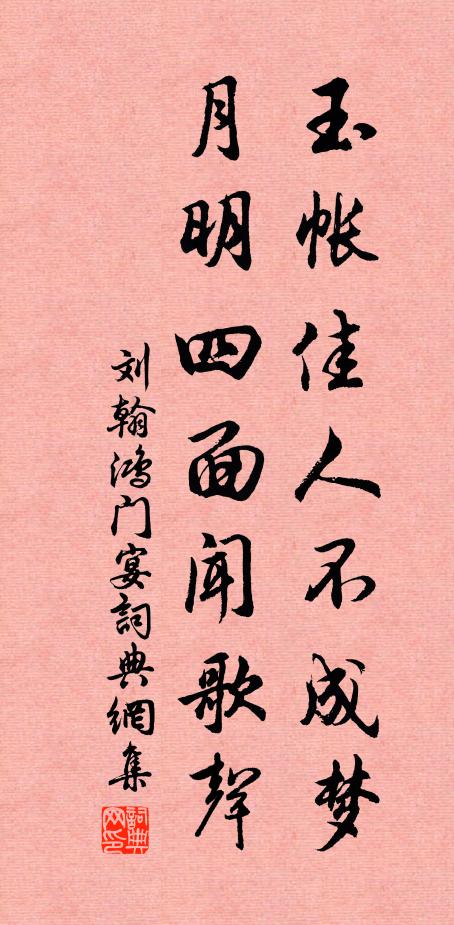 玉帐佳人不成梦
月明四面闻歌聲
刘翰鸿门宴詞典網集
詞典
网印